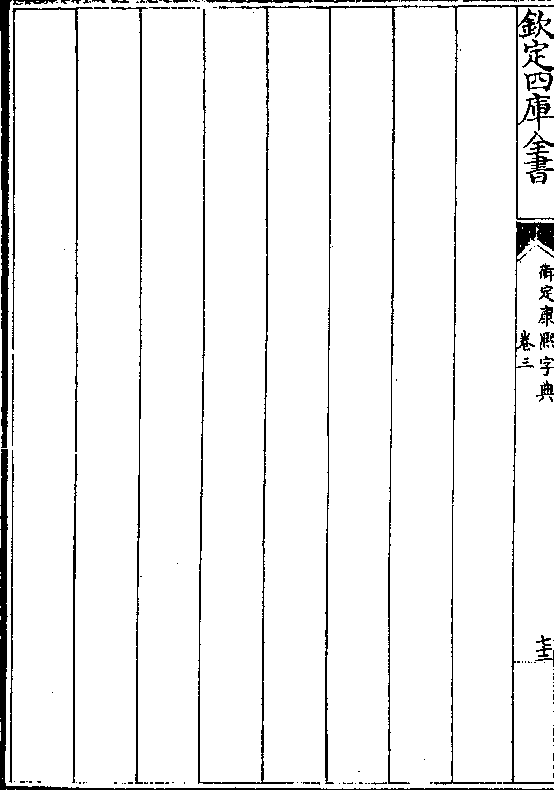 欽定四庫全書
御定康熙字典
卷三